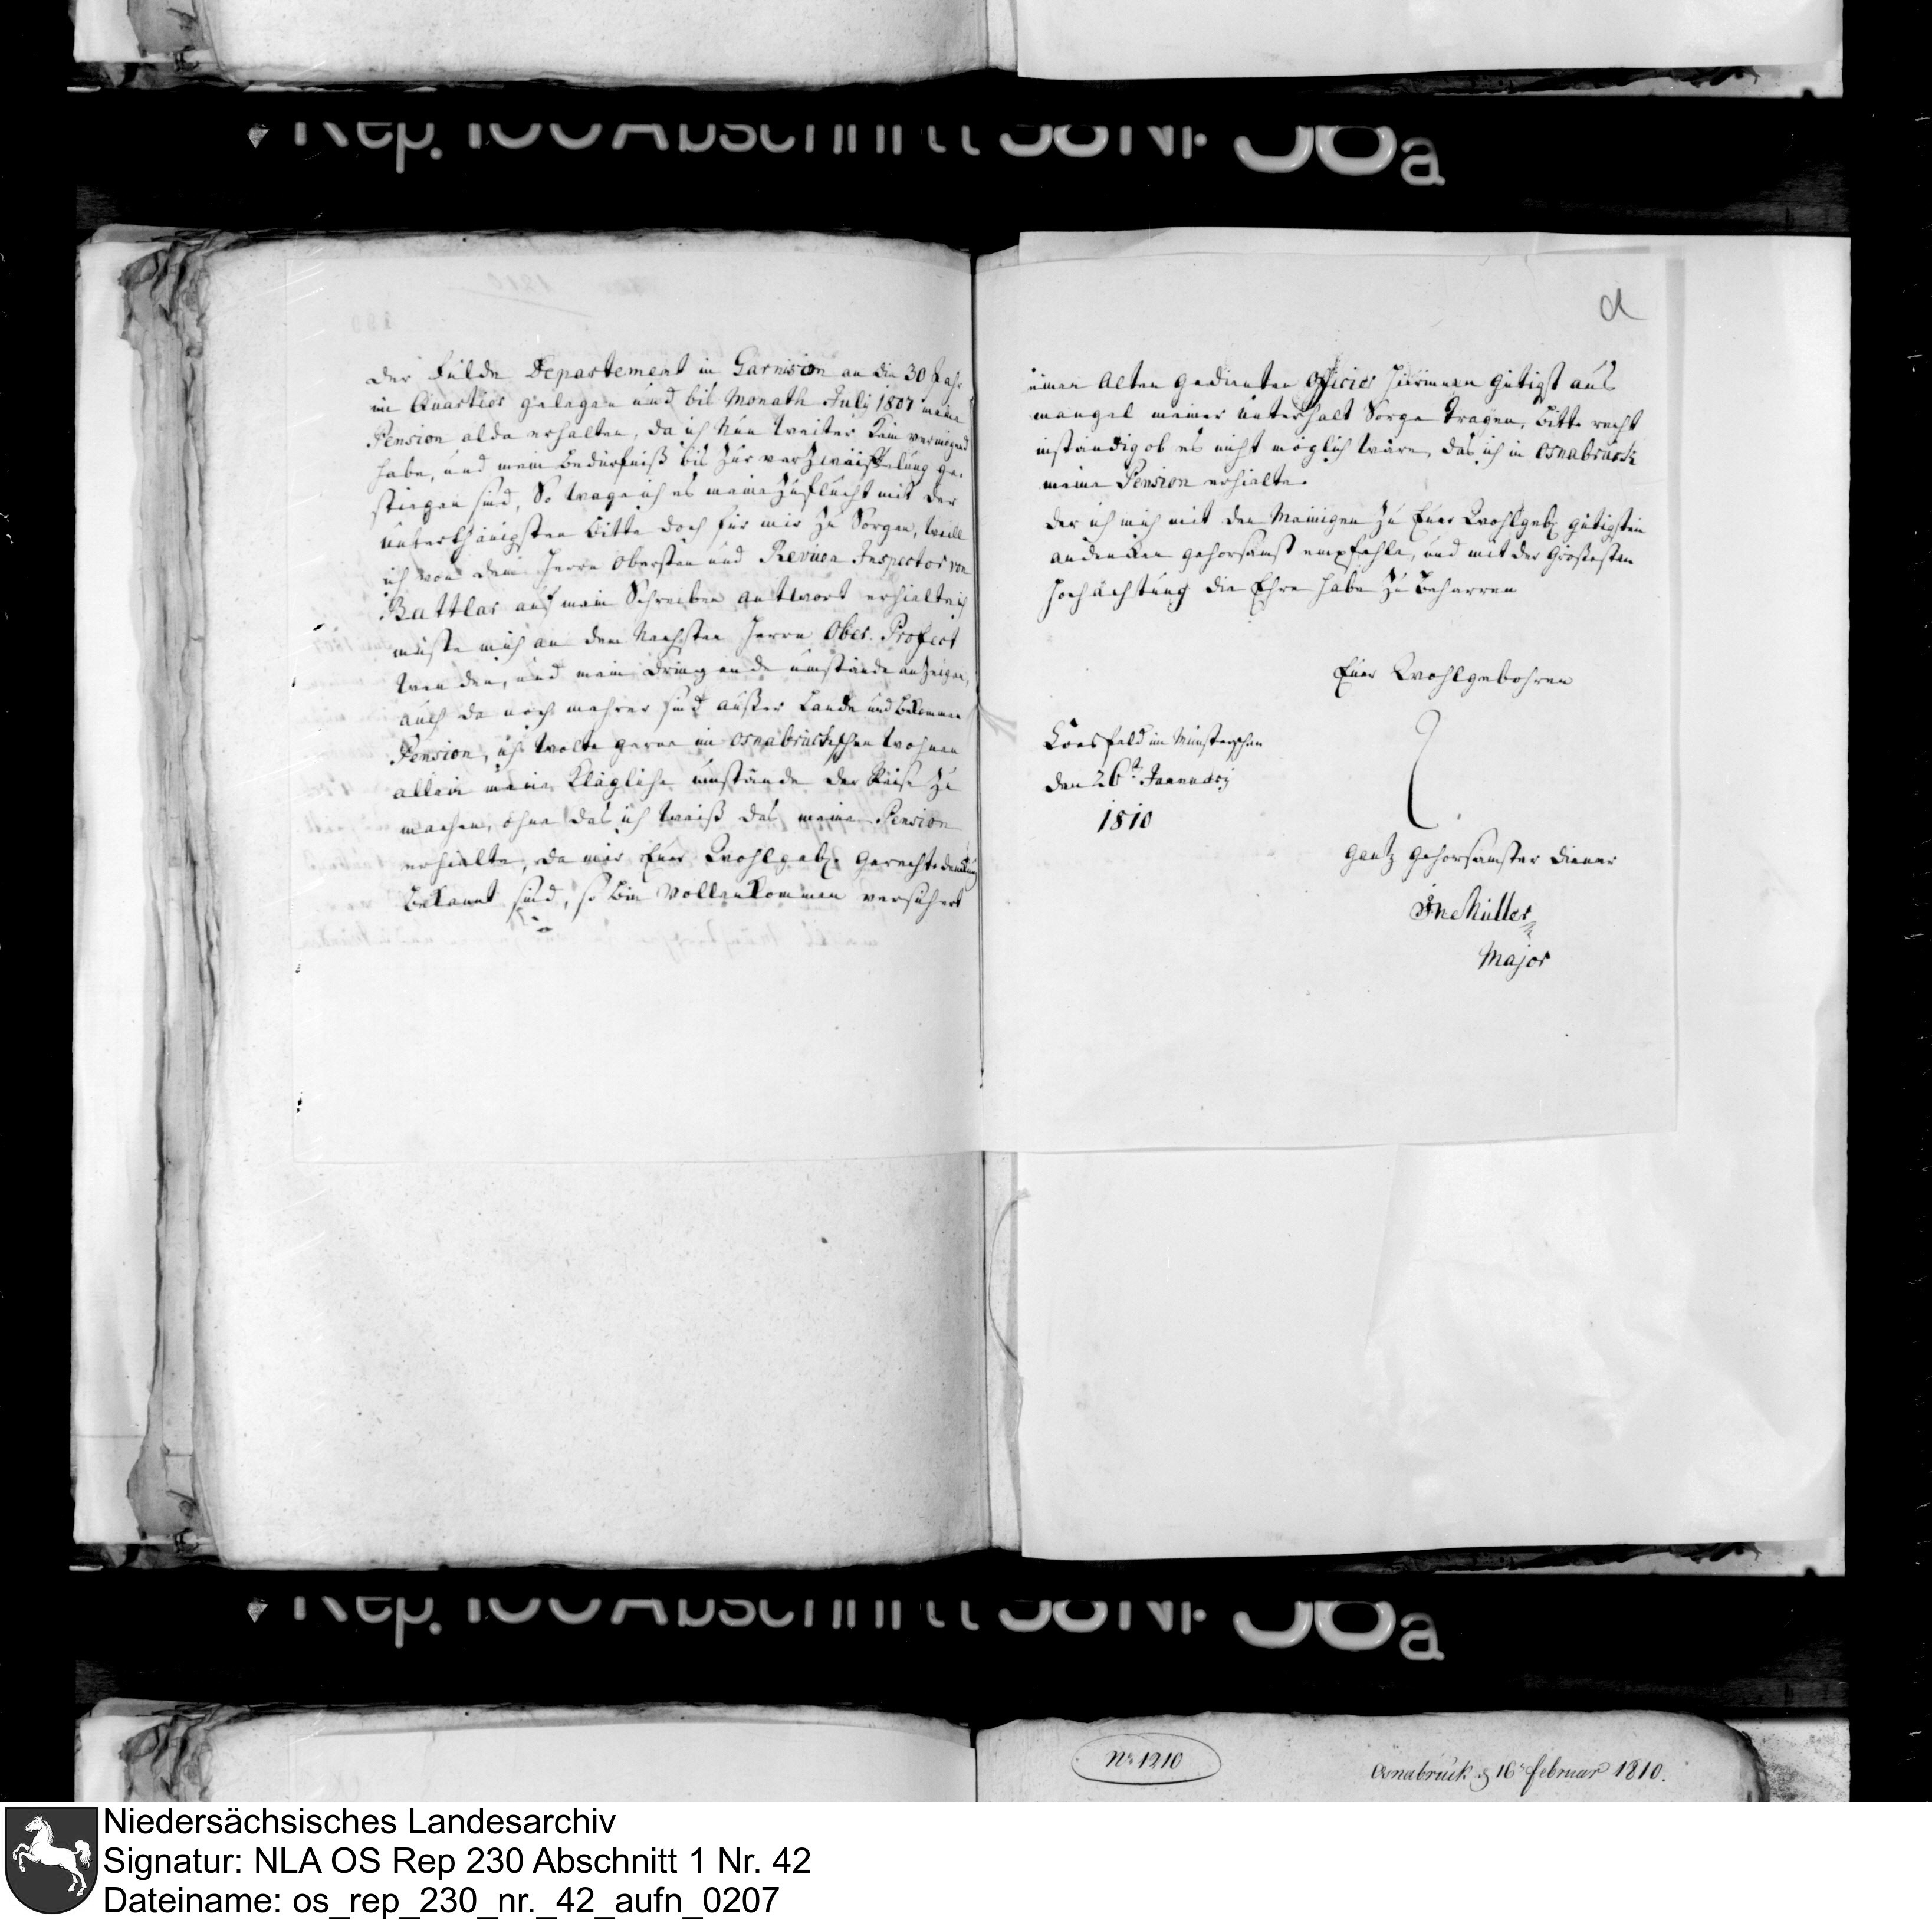 Rep. 100 Abschnitt 58 Nr. 36a
der Fulde Departement in Garnision an die 30 Jahr
im Quartier gelegen und bis Monath July 1807 meine
Pension alda erhalten, da ich nun weiter kein vermögend
habe, und mein Bedürfniß bis zur verzweiffelung ge-
stiegen sind, So wage ich es meine Zuflucht mit der
unterthänigsten Bitte doch für mir zu Sorgen, weill
ich von dem Herrn Obersten und Revuen Inspector von
Battlar auf mein Schreiben antwort erhielte ich
müste mich an dem Nechsten Herrn Ober. Profect
wenden, und mein dringende umstände anzeigen,
auch da noch mehrer sind außer Lande und bekommen
Pension, ich wolte gerne im osnabrückschen wohnen
allein meine klägliche umstände der Reise zu
machen, ohne das ich weiß das meine Pension
erhielte, da mir Euer Wohlgeb. Gerechte denkung
bekannt sind, so bin vollenkommen versichert
d
einen alten gedienten Officier hierinnen gütigst aus
mangel meiner unterhalt Sorge tragen, Bitte recht
inständig ob es nicht möglich wäre, das ich in osnabruck
meine Pension erhielte.
der ich mich mit den Meinigen zu Euer Wohlgeb. gütigstein
andenken gehorsamst empfehle, und mit der Großesten
Hochachtung die Ehre habe zu beharren
Euer Wohlgebohren
Coesfeld im Münsterschen
den 26t Januarij
1810
gantz gehorsamster diener
Müller
Major
Rep. 100 Abschnitt 58 Nr. 36a
No 1210
Osnabruck d 16t februar 1810.
Niedersächsisches Landesarchiv
Signatur: NLA OS Rep 230 Abschnitt 1 Nr. 42
Dateiname: os_rep_230_nr._42_aufn_0207